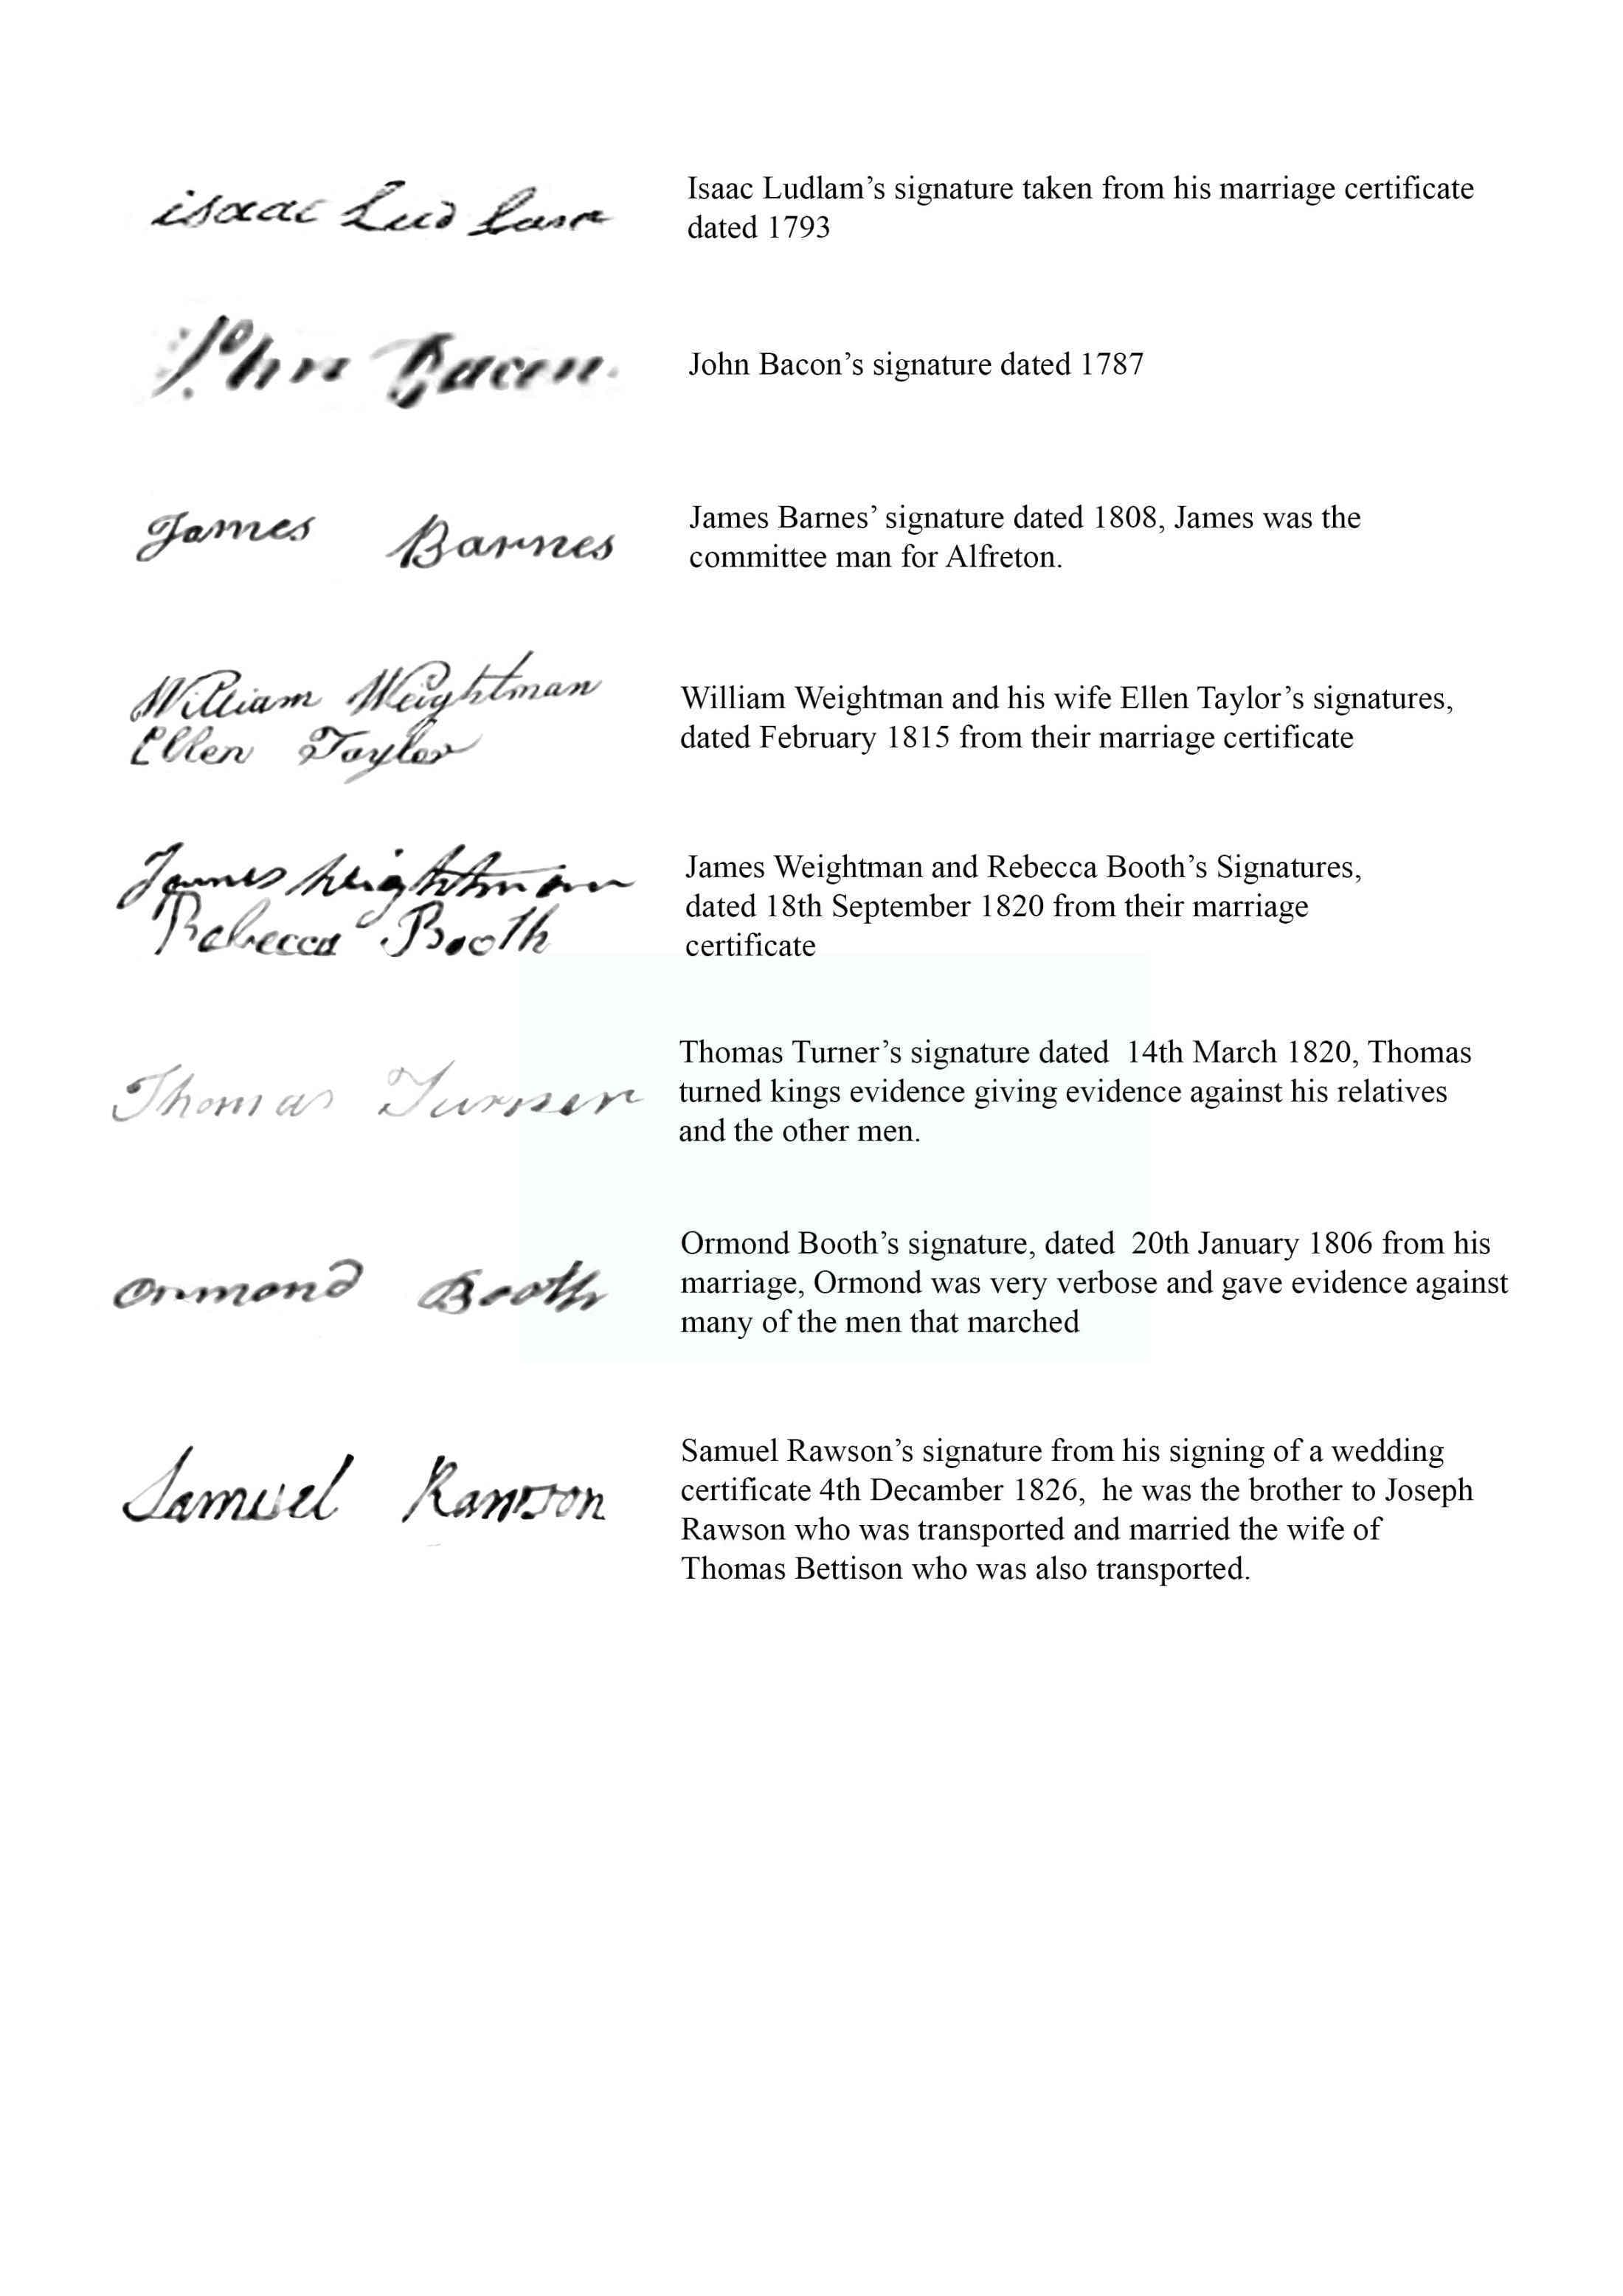 isaac Lud lam
Isaac Ludlam’s signature taken from his marriage certificate
dated 1793
John Bacon.
John Bacon’s signature dated 1787
James Barnes
James Barnes’ signature dated 1808, James was the
committee man for Alfreton.
William Weightman
Ellen Taylor
William Weightman and his wife Ellen Taylor’s signatures,
dated February 1815 from their marriage certificate
James Weightman
Rebecca Booth
James Weightman and Rebecca Booth’s Signatures,
dated 18th September 1820 from their marriage
certificate
Thomas Turner
Thomas Turner’s signature dated  14th March 1820, Thomas
turned kings evidence giving evidence against his relatives
and the other men.
Ormond Booth
Ormond Booth’s signature, dated  20th January 1806 from his
marriage, Ormond was very verbose and gave evidence against
many of the men that marched
Samuel Rawson
Samuel Rawson’s signature from his signing of a wedding
certificate 4th Decamber 1826,  he was the brother to Joseph
Rawson who was transported and married the wife of
Thomas Bettison who was also transported.